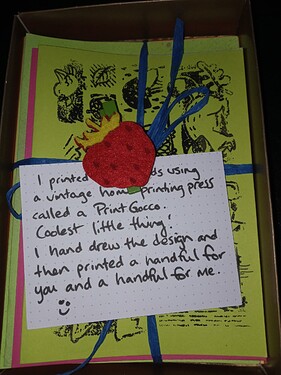 I printed ds using
a vintage home printing press
called a Print Gocco.
Coolest little thing!
I hand drew the design and
then printed a handful for
you and a handful for me.